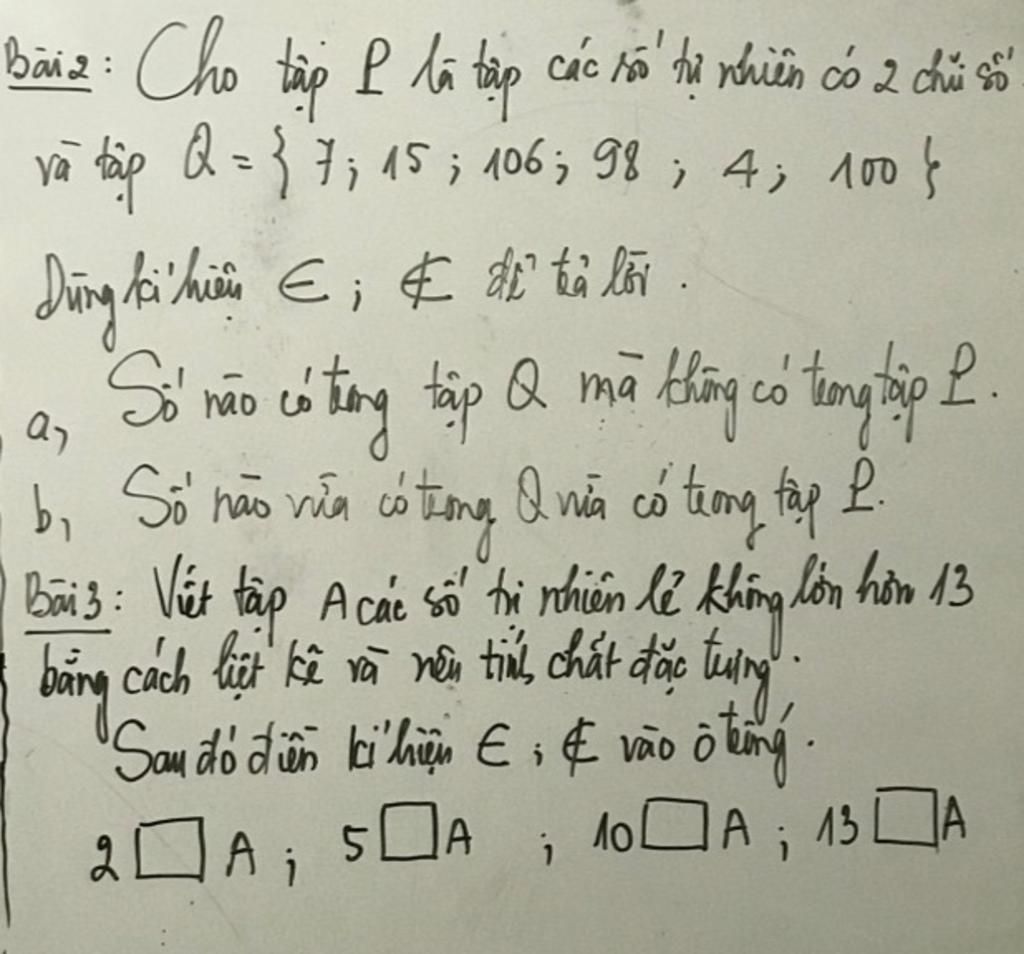 Bài 2: Cho tập P là tập các số tự nhiên có 2 chữ số
và tập Q = { 7; 15; 106; 98; 4; 100 }
Dùng kí hiệu ∈; ∉ để trả lời.
a, Số nào có trong tập Q mà không có trong tập P.
b, Số nào vừa có trong Q vừa có trong tập P.
Bài 3: Viết tập A các số tự nhiên lẻ không lớn hơn 13
bằng cách liệt kê và nêu tính chất đặc trưng.
Sau đó điền kí hiệu ∈; ∉ vào ô trống.
2 □ A; 5 □ A; 10 □ A; 13 □ A